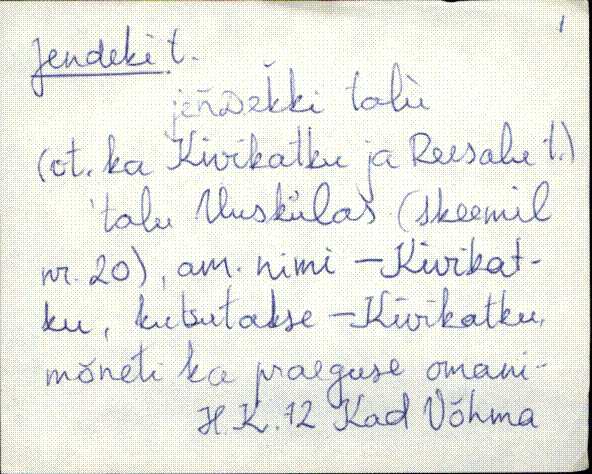 1
Jendeki t.
jeńᴅĕkki talù
(vt. ka Kivikatku ja Reesalu t.)
talu Uuskülas (skeemil
nr. 20), am. nimi – Kivikat-
ku, kutsutakse – Kivikatku,
mõneti ka praeguse omani-
H.K. 72 Kad Võhma